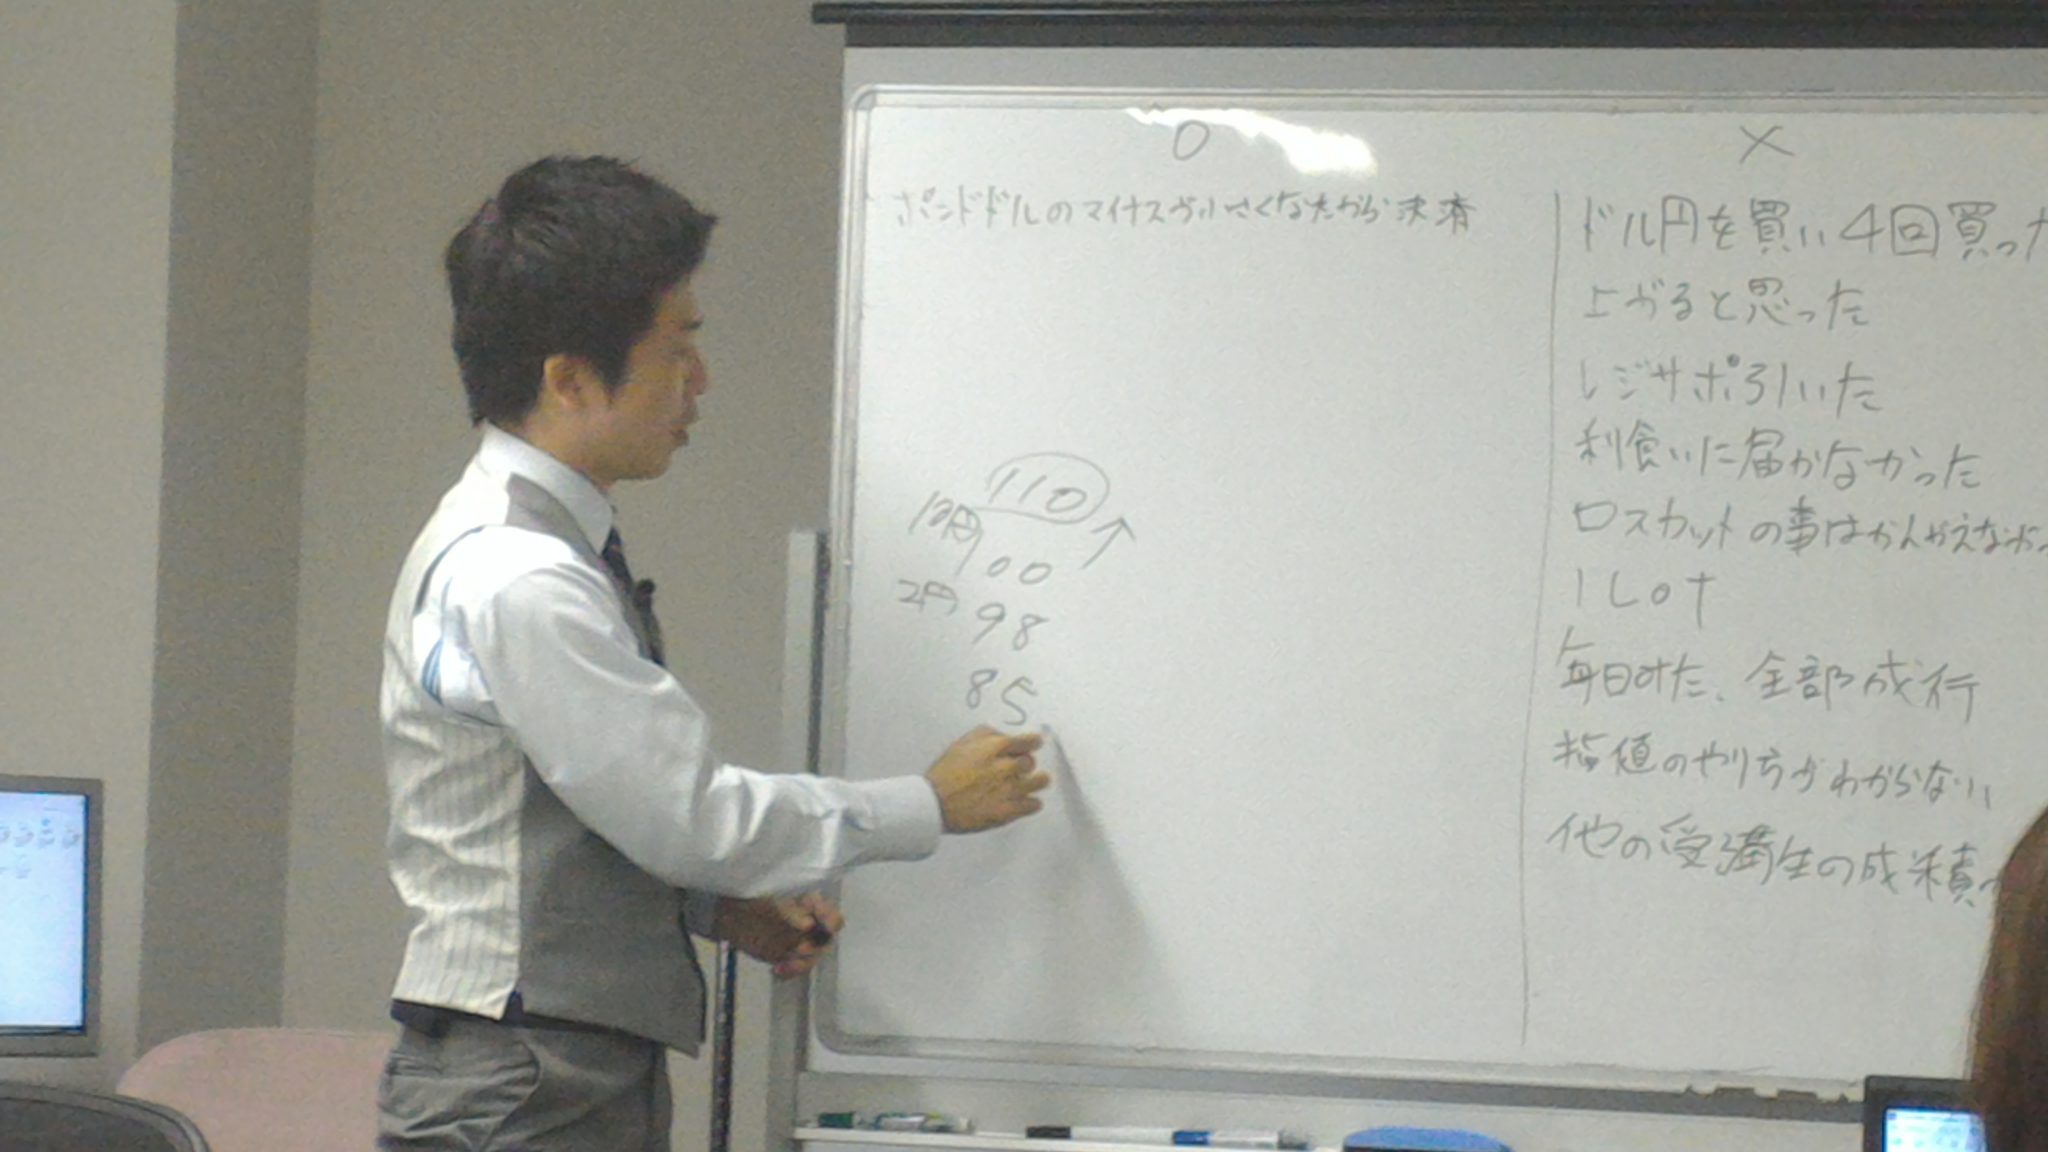 ○
×
ポンドドルのマイナスが小さくなたから決済
ドル円を買い4回買った
上がると思った
レジサポ引いた
利食いに届かなかった
ロスカットの事はかんがえなかっ
1Lot
毎日みた、全部成行
指値のやり方がわからない
他の受講生の成績
110
100
2円 98
85